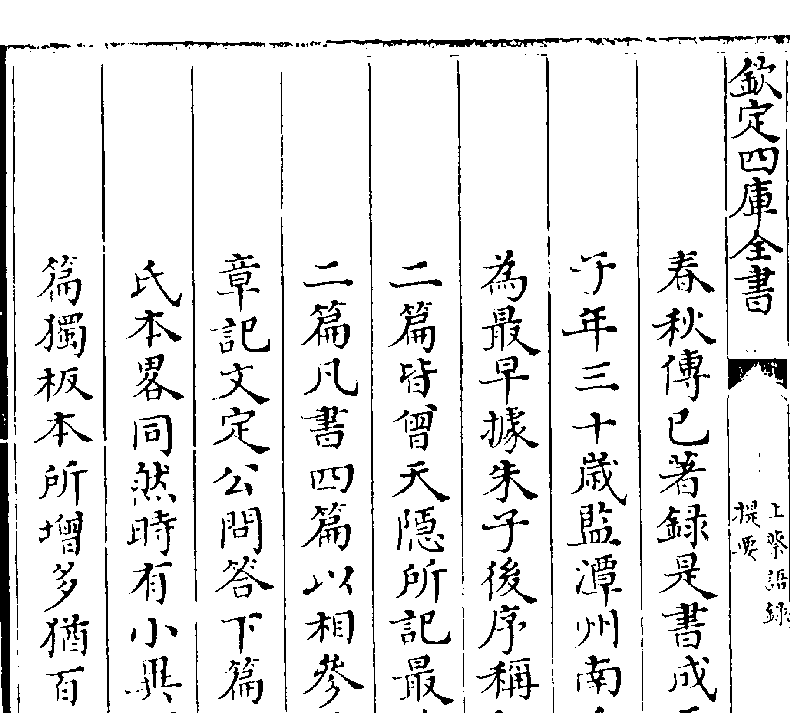 欽定四庫全書
上蔡語録
提要
春秋傳已著録是書成
子年三十歲監潭州南
為最早據朱子後序稱
二篇皆曾天隱所記最
二篇凡書四篇以相參
章記文定公問答下篇
氏本畧同然時有小異
篇獨板本所增多猶百